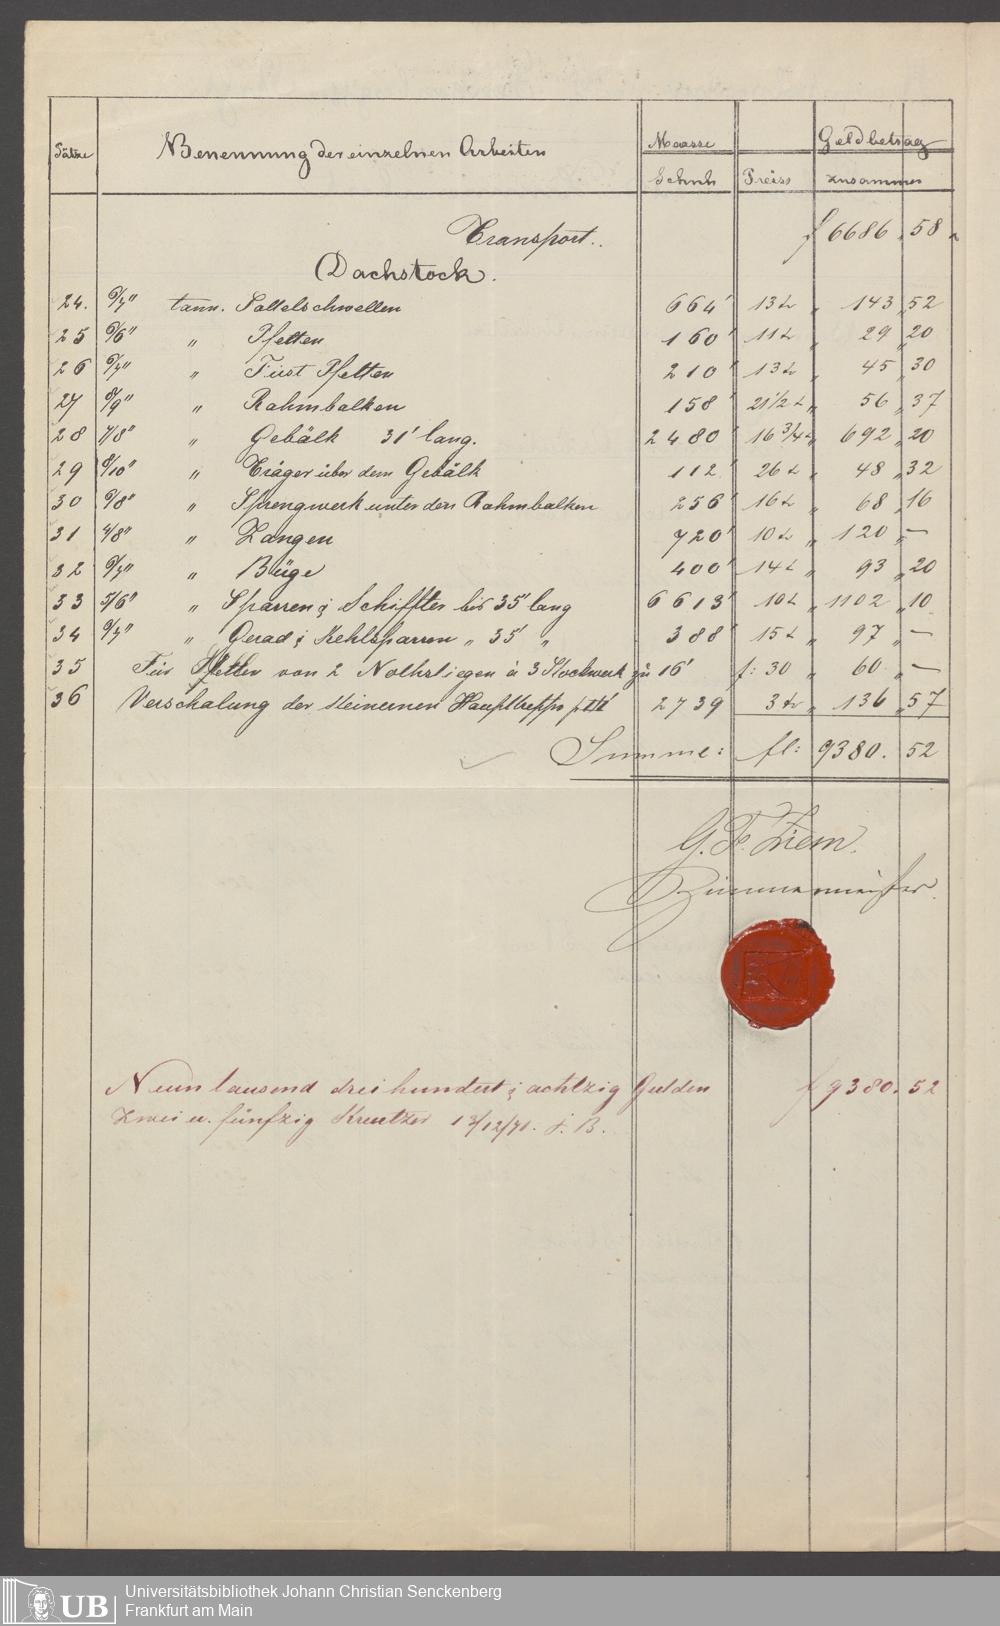 Sätze Benennung der einzelnen Arbeiten Maasse Geldbetrag
Schuh Preiss zusammen
Transport. f 6686 „ 58
Dachstock.
24. 6/7" tann. Sattelschwellen 664' 13 x „ 143 „ 52
25 6/6" „ Pfetten 160' 11 x „ 29 „ 20
26 6/7" „ First Pfetten 210' 13 x „ 45 „ 30
27 8/9" „ Rahmbalken 158' 21 1/2 x „ 56 „ 37
28 7/8" „ Gebälk 31' lang. 2480' 16 3/4 x „ 692 „ 20
29 8/10" „ Träger über dem Gebälk 112' 26 x „ 48 „ 32
30 6/8" „ Sprengwerk unter den Rahmbalken 256' 16 x „ 68 „ 16
31 4/8" „ Zangen 720' 10 x „ 120 „ —
32 6/7" „ Büge 400' 14 x „ 93 „ 20
33 5/6" „ Sparren & Schiffter bis 35' lang 6613' 10 x „ 1102 „ 10
34 6/7" „ Gerad & Kehlsparren „ 35' „ 388' 15 x „ 97 „ —
35 Für von 2 Nothstiegen à 3 Stockwerk zu 16' f: 30 „ 60 „ —
36 Verschalung der steinernen Haupttreppe 2739 3 xr „ 136 „ 57
Summe: fl: 9380. 52
G. F. Ziem.
Zimmermeister.
Neuntausend dreihundert & achtzig Gulden f 9380. 52
Zwei u. fünfzig Kreutzer 13/12/71. J. B.
UB Universitätsbibliothek Johann Christian Senckenberg
Frankfurt am Main